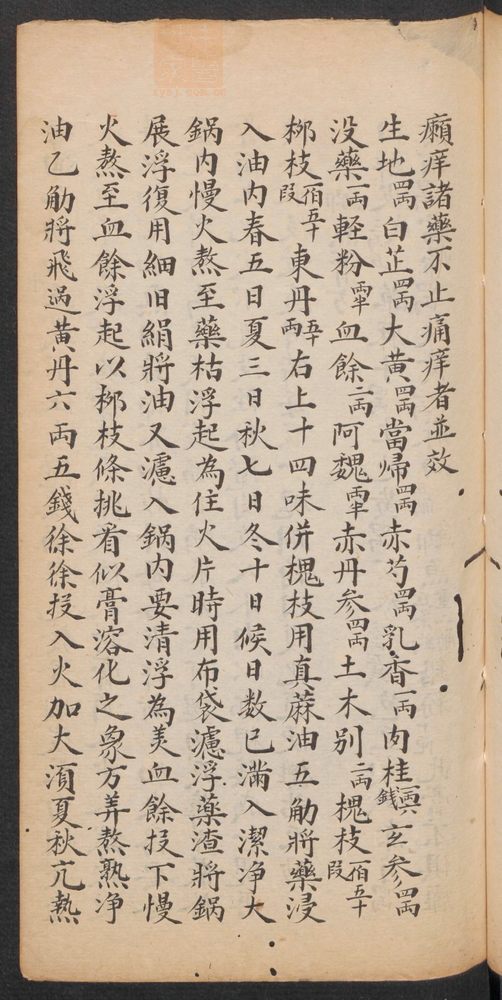 癩痒諸藥不止痛痒者並效
生地四両白芷四両大黄四両當帰四両赤芍四両乳香一両肉桂一両六錢玄参四両
没藥一両軽粉両半血餘二両阿魏両半赤丹参四両土木別二両槐枝佰五十段
栁枝佰五十段東丹五十両右上十四味併槐枝用真蔴油五觔將藥浸
入油内春五日夏三日秋七日冬十日候日数已滿入潔净大
鍋内慢火熬至藥枯浮起為住火片時用布袋濾浮藥渣將鍋
展浮復用細旧絹將油又濾入鍋内要清浮為美血餘投下慢
火熬至血餘浮起以栁枝條挑看似膏溶化之象方算熬熟净
油乙觔將飛过黄丹六両五錢徐徐投入火加大湏夏秋亢熱